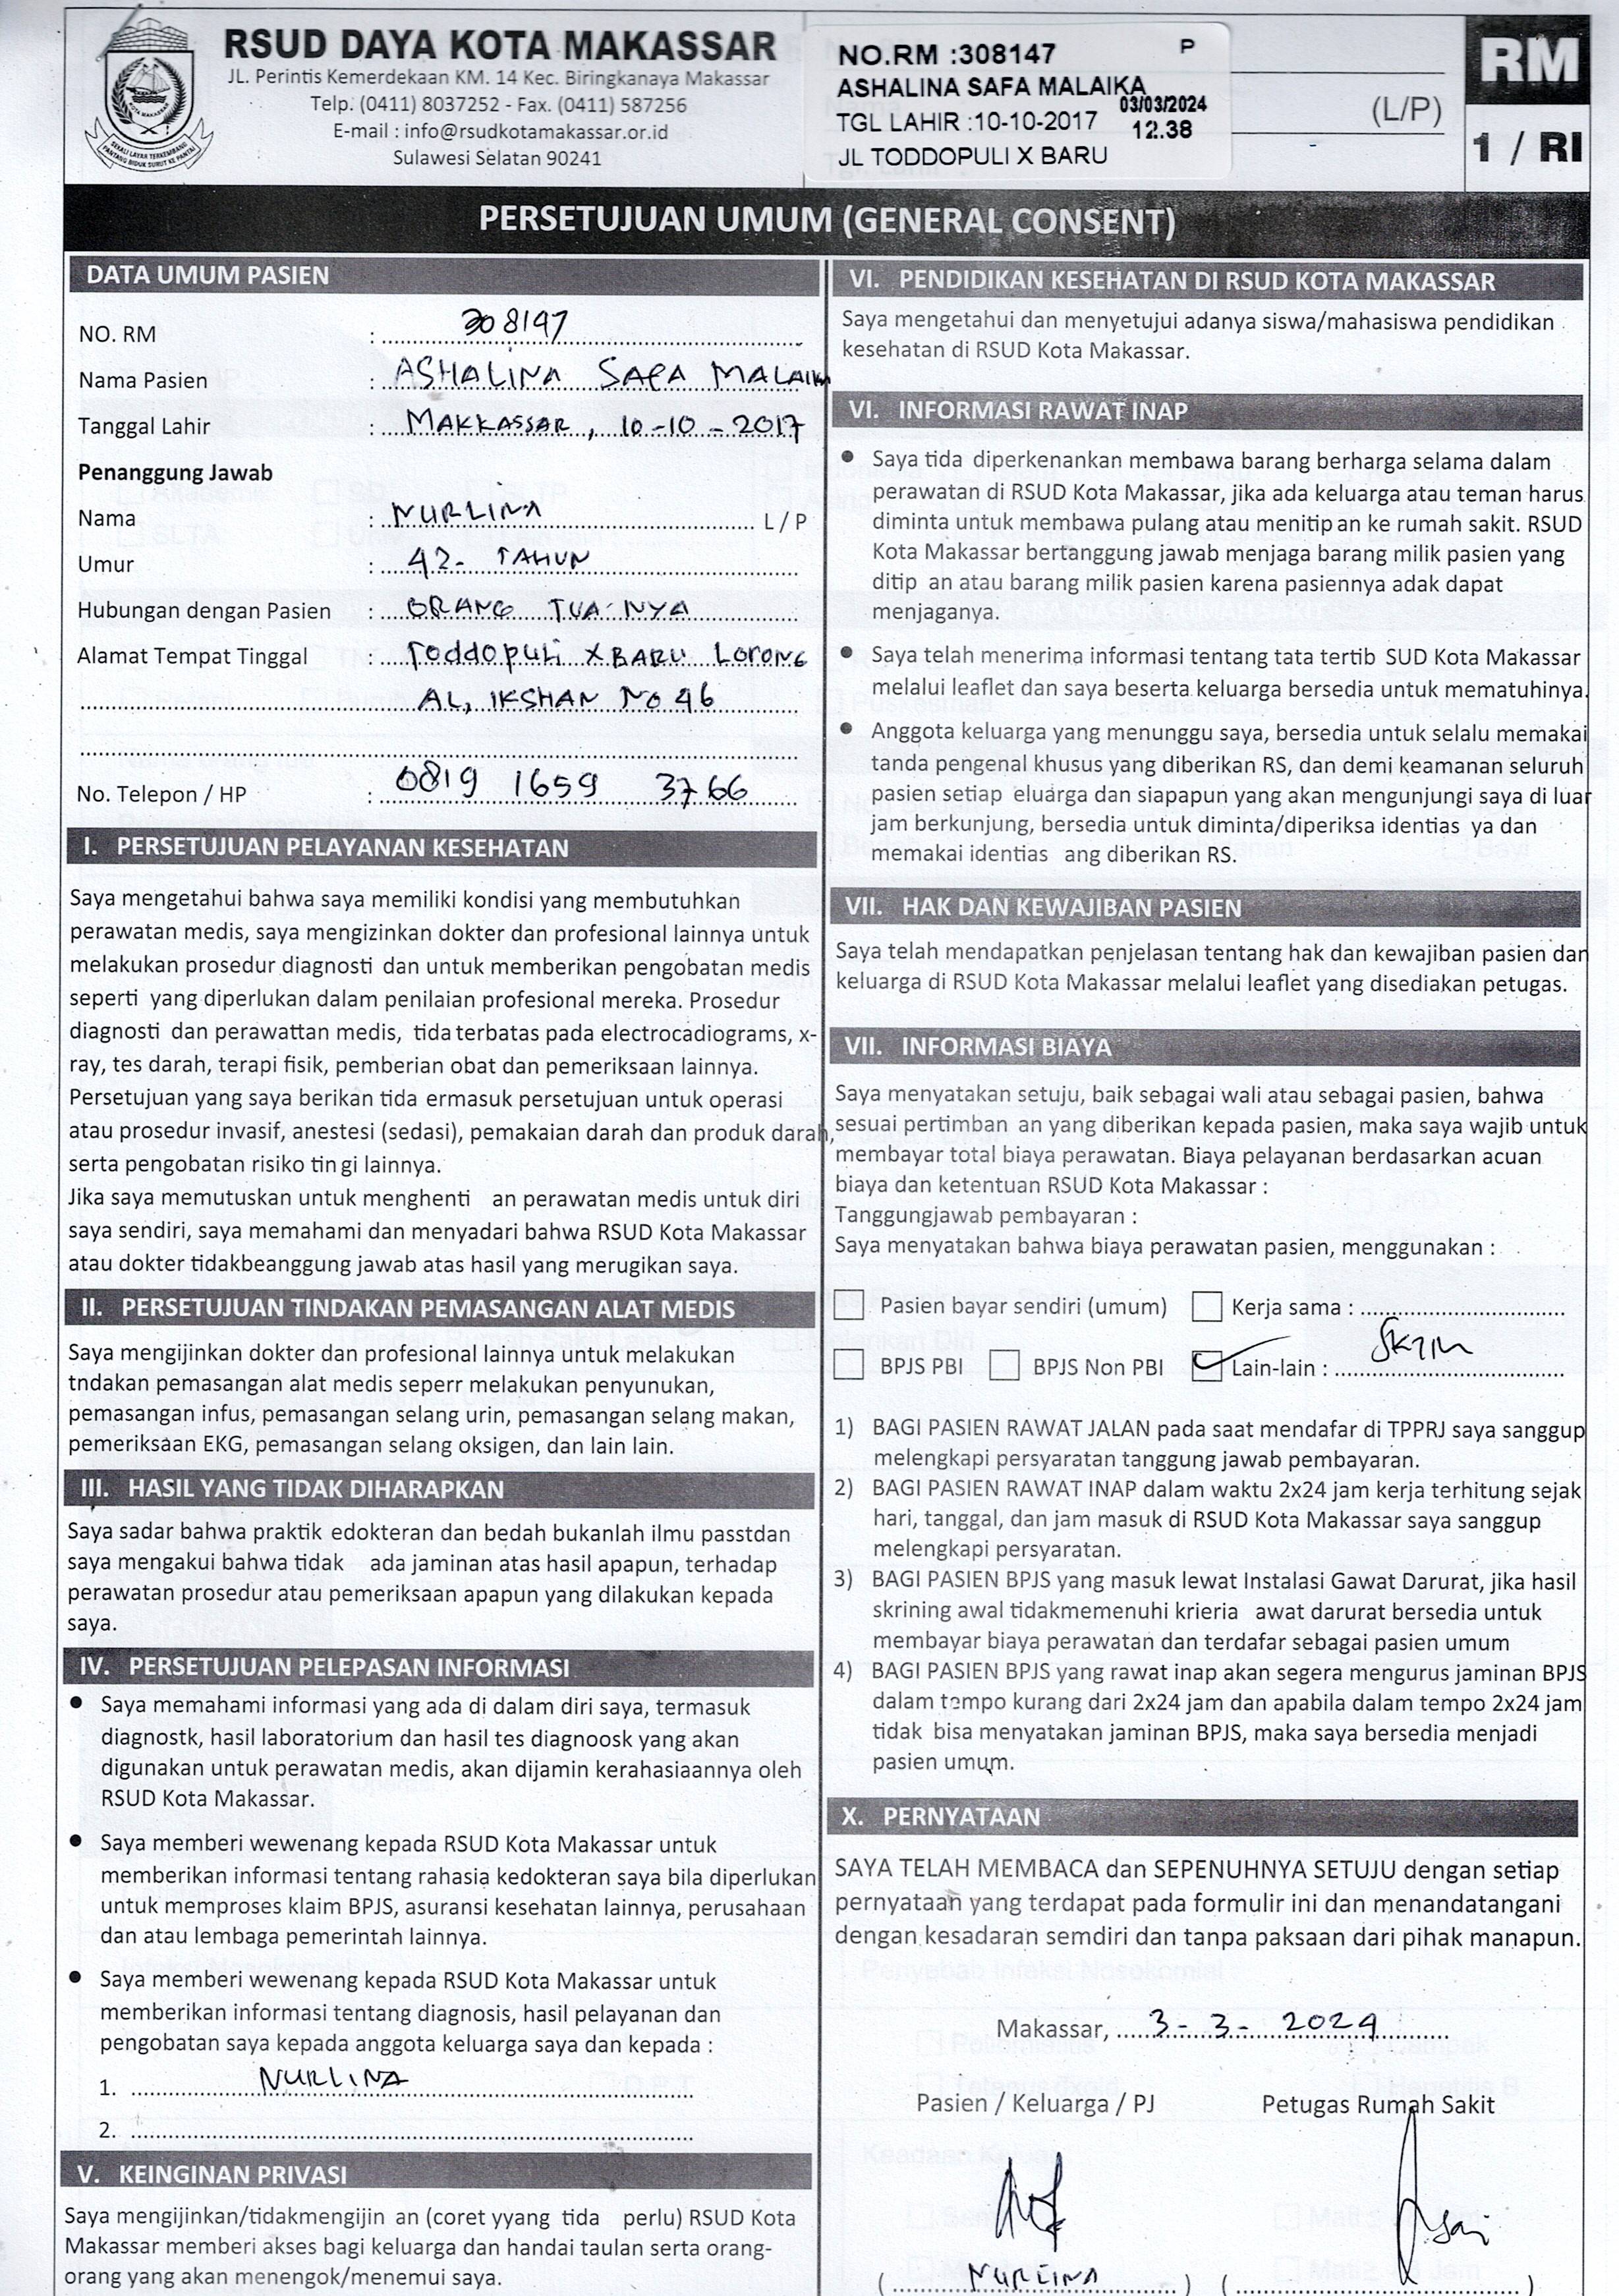 RSUD DAYA KOTA MAKASSAR
JL. Perintis Kemerdekaan KM. 14 Kec. Biringkanaya Makassar
Telp. (0411) 8037252 - Fax. (0411) 587256
E-mail : info@rsudkotamakassar.or.id
Sulawesi Selatan 90241
NO.RM :308147 P
ASHALINA SAFA MALAIKA
03/03/2024
TGL LAHIR :10-10-2017 12.38
JL TODDOPULI X BARU
(L/P)
RM
1 / RI
PERSETUJUAN UMUM (GENERAL CONSENT)
DATA UMUM PASIEN
NO. RM : 308147
Nama Pasien : ASHALINA SAFA MALAIKA
Tanggal Lahir : MAKKASSAR, 10-10-2017
Penanggung Jawab
Nama : NURLINA L / P
Umur : 42- TAHUN
Hubungan dengan Pasien : ORANG TUA NYA
Alamat Tempat Tinggal : Toddopuli X BARU LORONG
AL, IKSHAN No 46
No. Telepon / HP : 0819 1659 3766
I. PERSETUJUAN PELAYANAN KESEHATAN
Saya mengetahui bahwa saya memiliki kondisi yang membutuhkan
perawatan medis, saya mengizinkan dokter dan profesional lainnya untuk
melakukan prosedur diagnosti dan untuk memberikan pengobatan medis
seperti yang diperlukan dalam penilaian profesional mereka. Prosedur
diagnosti dan perawattan medis, tida terbatas pada electrocadiograms, x-
ray, tes darah, terapi fisik, pemberian obat dan pemeriksaan lainnya.
Persetujuan yang saya berikan tida ermasuk persetujuan untuk operasi
atau prosedur invasif, anestesi (sedasi), pemakaian darah dan produk darah,
serta pengobatan risiko tin gi lainnya.
Jika saya memutuskan untuk menghenti an perawatan medis untuk diri
saya sendiri, saya memahami dan menyadari bahwa RSUD Kota Makassar
atau dokter tidakbeanggung jawab atas hasil yang merugikan saya.
II. PERSETUJUAN TINDAKAN PEMASANGAN ALAT MEDIS
Saya mengijinkan dokter dan profesional lainnya untuk melakukan
tndakan pemasangan alat medis seperr melakukan penyunukan,
pemasangan infus, pemasangan selang urin, pemasangan selang makan,
pemeriksaan EKG, pemasangan selang oksigen, dan lain lain.
III. HASIL YANG TIDAK DIHARAPKAN
Saya sadar bahwa praktik edokteran dan bedah bukanlah ilmu passtdan
saya mengakui bahwa tidak ada jaminan atas hasil apapun, terhadap
perawatan prosedur atau pemeriksaan apapun yang dilakukan kepada
saya.
IV. PERSETUJUAN PELEPASAN INFORMASI
● Saya memahami informasi yang ada di dalam diri saya, termasuk
diagnostk, hasil laboratorium dan hasil tes diagnoosk yang akan
digunakan untuk perawatan medis, akan dijamin kerahasiaannya oleh
RSUD Kota Makassar.
● Saya memberi wewenang kepada RSUD Kota Makassar untuk
memberikan informasi tentang rahasia kedokteran saya bila diperlukan
untuk memproses klaim BPJS, asuransi kesehatan lainnya, perusahaan
dan atau lembaga pemerintah lainnya.
● Saya memberi wewenang kepada RSUD Kota Makassar untuk
memberikan informasi tentang diagnosis, hasil pelayanan dan
pengobatan saya kepada anggota keluarga saya dan kepada :
1. NURLINA
2.
V. KEINGINAN PRIVASI
Saya mengijinkan/tidakmengijin an (coret yyang tida perlu) RSUD Kota
Makassar memberi akses bagi keluarga dan handai taulan serta orang-
orang yang akan menengok/menemui saya.
VI. PENDIDIKAN KESEHATAN DI RSUD KOTA MAKASSAR
Saya mengetahui dan menyetujui adanya siswa/mahasiswa pendidikan
kesehatan di RSUD Kota Makassar.
VI. INFORMASI RAWAT INAP
● Saya tida diperkenankan membawa barang berharga selama dalam
perawatan di RSUD Kota Makassar, jika ada keluarga atau teman harus
diminta untuk membawa pulang atau menitip an ke rumah sakit. RSUD
Kota Makassar bertanggung jawab menjaga barang milik pasien yang
ditip an atau barang milik pasien karena pasiennya adak dapat
menjaganya.
● Saya telah menerima informasi tentang tata tertib SUD Kota Makassar
melalui leaflet dan saya beserta keluarga bersedia untuk mematuhinya.
● Anggota keluarga yang menunggu saya, bersedia untuk selalu memakai
tanda pengenal khusus yang diberikan RS, dan demi keamanan seluruh
pasien setiap eluarga dan siapapun yang akan mengunjungi saya di luar
jam berkunjung, bersedia untuk diminta/diperiksa identias ya dan
memakai identias ang diberikan RS.
VII. HAK DAN KEWAJIBAN PASIEN
Saya telah mendapatkan penjelasan tentang hak dan kewajiban pasien dan
keluarga di RSUD Kota Makassar melalui leaflet yang disediakan petugas.
VII. INFORMASI BIAYA
Saya menyatakan setuju, baik sebagai wali atau sebagai pasien, bahwa
sesuai pertimban an yang diberikan kepada pasien, maka saya wajib untuk
membayar total biaya perawatan. Biaya pelayanan berdasarkan acuan
biaya dan ketentuan RSUD Kota Makassar :
Tanggungjawab pembayaran :
Saya menyatakan bahwa biaya perawatan pasien, menggunakan :
Pasien bayar sendiri (umum) Kerja sama :
BPJS PBI BPJS Non PBI Lain-lain :
1) BAGI PASIEN RAWAT JALAN pada saat mendafar di TPPRJ saya sanggup
melengkapi persyaratan tanggung jawab pembayaran.
2) BAGI PASIEN RAWAT INAP dalam waktu 2x24 jam kerja terhitung sejak
hari, tanggal, dan jam masuk di RSUD Kota Makassar saya sanggup
melengkapi persyaratan.
3) BAGI PASIEN BPJS yang masuk lewat Instalasi Gawat Darurat, jika hasil
skrining awal tidakmemenuhi krieria awat darurat bersedia untuk
membayar biaya perawatan dan terdafar sebagai pasien umum
4) BAGI PASIEN BPJS yang rawat inap akan segera mengurus jaminan BPJS
dalam tempo kurang dari 2x24 jam dan apabila dalam tempo 2x24 jam
tidak bisa menyatakan jaminan BPJS, maka saya bersedia menjadi
pasien umum.
X. PERNYATAAN
SAYA TELAH MEMBACA dan SEPENUHNYA SETUJU dengan setiap
pernyataan yang terdapat pada formulir ini dan menandatangani
dengan kesadaran semdiri dan tanpa paksaan dari pihak manapun.
Makassar, 3-3-2024
Pasien / Keluarga / PJ Petugas Rumah Sakit
( NURLINA ) ( )